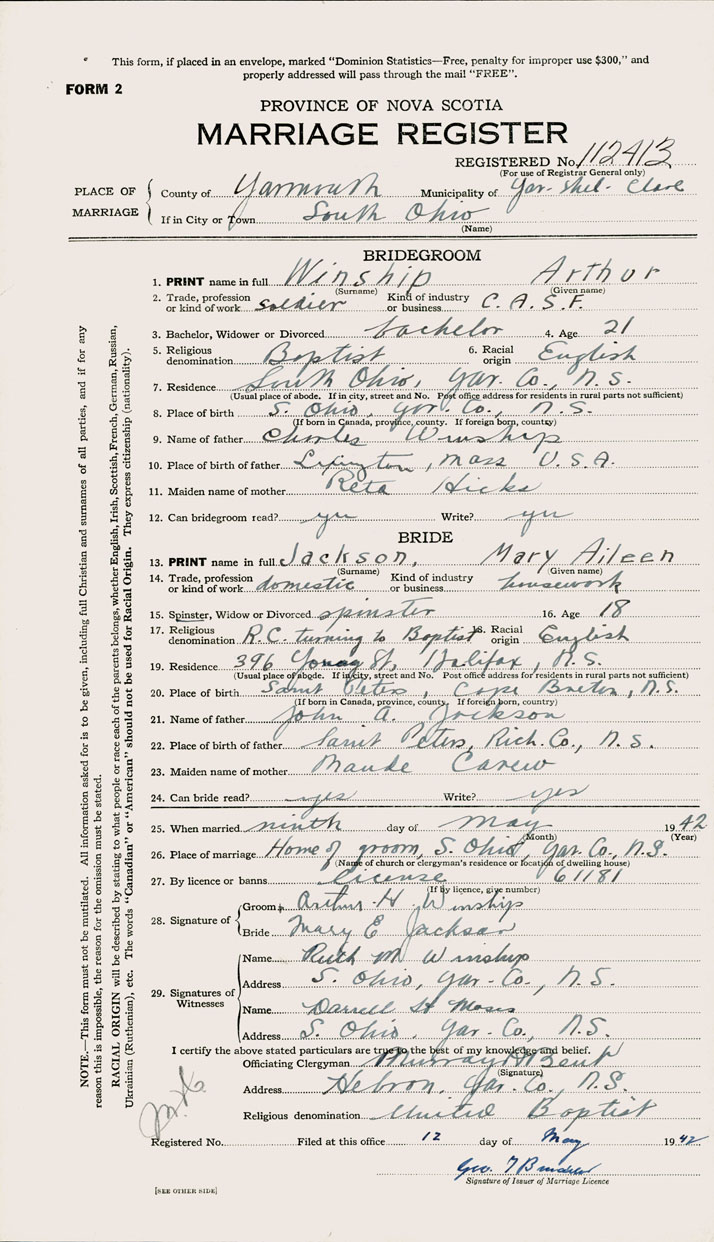 This form, if placed in an envelope, marked "Dominion Statistics—Free, penalty for improper use $300," and
properly addressed will pass through the mail "FREE".
FORM 2
PROVINCE OF NOVA SCOTIA
MARRIAGE REGISTER
REGISTERED No. 112413
(For use of Registrar General only)
PLACE OF MARRIAGE
County of Yarmouth Municipality of Yar-Shel-Clare
If in City or Town South Ohio
(Name)
BRIDEGROOM
1. PRINT name in full Winship Arthur
(Surname) (Given name)
2. Trade, profession or kind of work soldier Kind of industry or business C.A.S.F.
3. Bachelor, Widower or Divorced bachelor 4. Age 21
5. Religious denomination Baptist 6. Racial origin English
7. Residence South Ohio, Yar. Co., N.S.
(Usual place of abode. If in city, street and No. Post office address for residents in rural parts not sufficient)
8. Place of birth S. Ohio, Yar. Co., N.S.
(If born in Canada, province, county. If foreign born, country)
9. Name of father Charles Winship
10. Place of birth of father Lexington, Mass U.S.A.
11. Maiden name of mother Reta Hicks
12. Can bridegroom read? yes Write? yes
BRIDE
13. PRINT name in full Jackson, Mary Aileen
(Surname) (Given name)
14. Trade, profession or kind of work domestic Kind of industry or business housework
15. Spinster, Widow or Divorced spinster 16. Age 18
17. Religious denomination R.C. turning to Baptist 18. Racial origin English
19. Residence 396 Young St, Halifax, N.S.
(Usual place of abode. If in city, street and No. Post office address for residents in rural parts not sufficient)
20. Place of birth Saint Peters, Cape Breton, N.S.
(If born in Canada, province, county. If foreign born, country)
21. Name of father John A. Jackson
22. Place of birth of father Saint Peters, Rich. Co., N.S.
23. Maiden name of mother Maude Carew
24. Can bride read? yes Write? yes
25. When married ninth day of May 1942
(Month) (Year)
26. Place of marriage Home of groom, S. Ohio, Yar. Co., N.S.
(Name of church or clergyman's residence or location of dwelling house)
27. By licence or banns License 61181
(If by licence, give number)
28. Signature of
Groom Arthur H Winship
Bride Mary E Jackson
29. Signatures of Witnesses
Name Ruth M Winship
Address S. Ohio, Yar. Co., N.S.
Name Darrell St Moses
Address S. Ohio, Yar. Co., N.S.
I certify the above stated particulars are true to the best of my knowledge and belief.
Officiating Clergyman Murray H Bent
(Signature)
Address Hebron, Yar. Co., N.S.
Religious denomination United Baptist
Registered No. Filed at this office 12 day of May 1942
Geo. T
Signature of Issuer of Marriage Licence
[SEE OTHER SIDE]
NOTE.—This form must not be mutilated. All information asked for is to be given, including full Christian and surnames of all parties, and if for any
reason this is impossible, the reason for the omission must be stated.
RACIAL ORIGIN will be described by stating to what people or race each of the parents belongs, whether English, Irish, Scottish, French, German, Russian,
Ukrainian (Ruthenian), etc. The words "Canadian" or "American" should not be used for Racial Origin. They express citizenship (nationality).